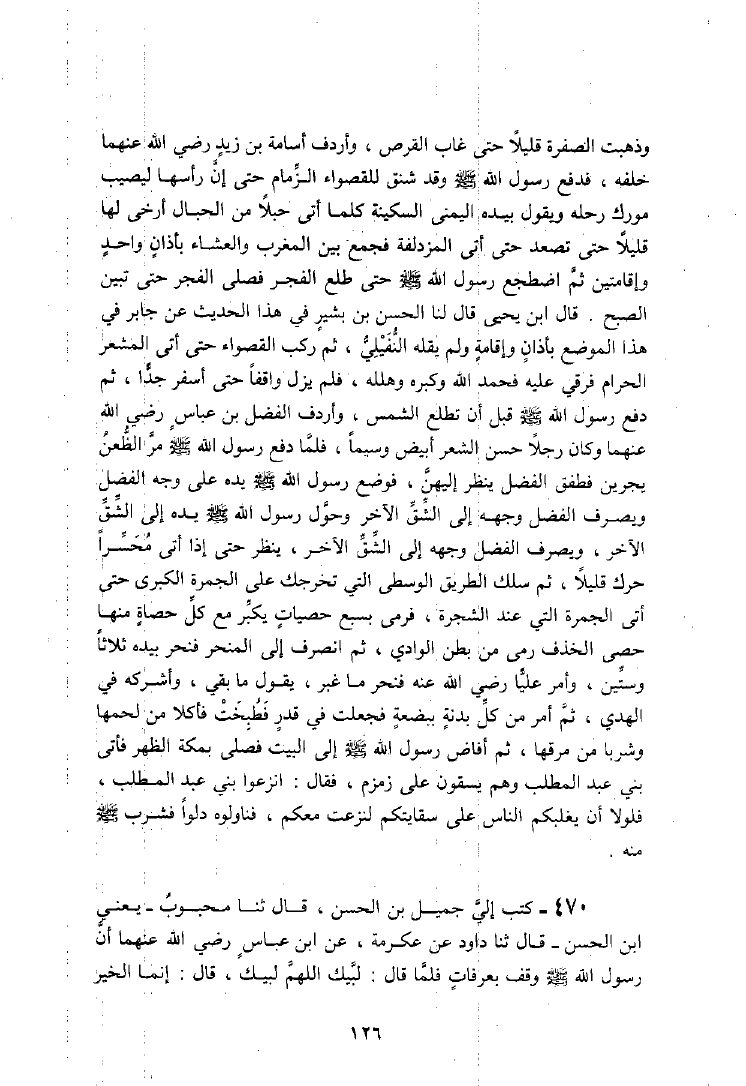 وذهبت الصفرة قليلًا حتى غاب القرص ، وأردف أسامة بن زيدٍ رضي الله عنهما
خلفه ، فدفع رسول الله ﷺ وقد شنق للقصواء الزِّمام حتى إن رأسها ليصيب
مورك رحله ويقول بيده اليمنى السكينة كلما أتى حبلًا من الحبال أرخى لها
قليلًا حتى تصعد حتى أتى المزدلفة فجمع بين المغرب والعشاء بأذانٍ واحدٍ
وإقامتين ثمَّ اضطجع رسول الله ﷺ حتى طلع الفجر فصلى الفجر حتى تبين
الصبح . قال ابن يحيى قال لنا الحسن بن بشيرٍ في هذا الحديث عن جابر في
هذا الموضع بأذانٍ وإقامةٍ ولم يقله النُّفَيْلِيُّ ، ثم ركب القصواء حتى أتى المشعر
الحرام فرقي عليه فحمد الله وكبره وهلله ، فلم يزل واقفاً حتى أسفر جدًّا ، ثم
دفع رسول الله ﷺ قبل أن تطلع الشمس ، وأردف الفضل بن عباسٍ رضي الله
عنهما وكان رجلًا حسن الشعر أبيض وسيماً ، فلمَّا دفع رسول الله ﷺ مرَّ الظُّعنُ
يجرين فطفق الفضل ينظر إليهنَّ ، فوضع رسول الله ﷺ يده على وجه الفضل
ويصرف الفضل وجهه إلى الشِّقِّ الآخر وحوَّل رسول الله ﷺ يده إلى الشِّقِّ
الآخر ، ويصرف الفضل وجهه إلى الشِّقِّ الآخر ، ينظر حتى إذا أتى مُحَسِّراً
حرك قليلًا ، ثم سلك الطريق الوسطى التي تخرجك على الجمرة الكبرى حتى
أتى الجمرة التي عند الشجرة ، فرمى بسبع حصياتٍ يكبِّر مع كلِّ حصاةٍ منها
حصى الخذف رمى من بطن الوادي ، ثم انصرف إلى المنحر فنحر بيده ثلاثاً
وستِّين ، وأمر عليًّا رضي الله عنه فنحر ما غبر ، يقول ما بقي ، وأشركه في
الهدي ، ثمَّ أمر من كلِّ بدنةٍ ببضعةٍ فجعلت في قدرٍ فَطُبِخَتْ فأكلا من لحمها
وشربا من مرقها ، ثم أفاض رسول الله ﷺ إلى البيت فصلى بمكة الظهر فأتى
بني عبد المطلب وهم يسقون على زمزم ، فقال : انزعوا بني عبد المطلب ،
فلولا أن يغلبكم الناس على سقايتكم لنزعت معكم ، فناولوه دلواً فشرب ﷺ
منه .
٤٧٠ ـ كتب إليَّ جميل بن الحسن ، قال ثنا محبوبُ ـ يعني
ابن الحسن ـ قال ثنا داود عن عكرمة ، عن ابن عباسٍ رضي الله عنهما أنَّ
رسول الله ﷺ وقف بعرفاتٍ فلمَّا قال : لبَّيك اللهمَّ لبيك ، قال : إنما الخير
١٢٦